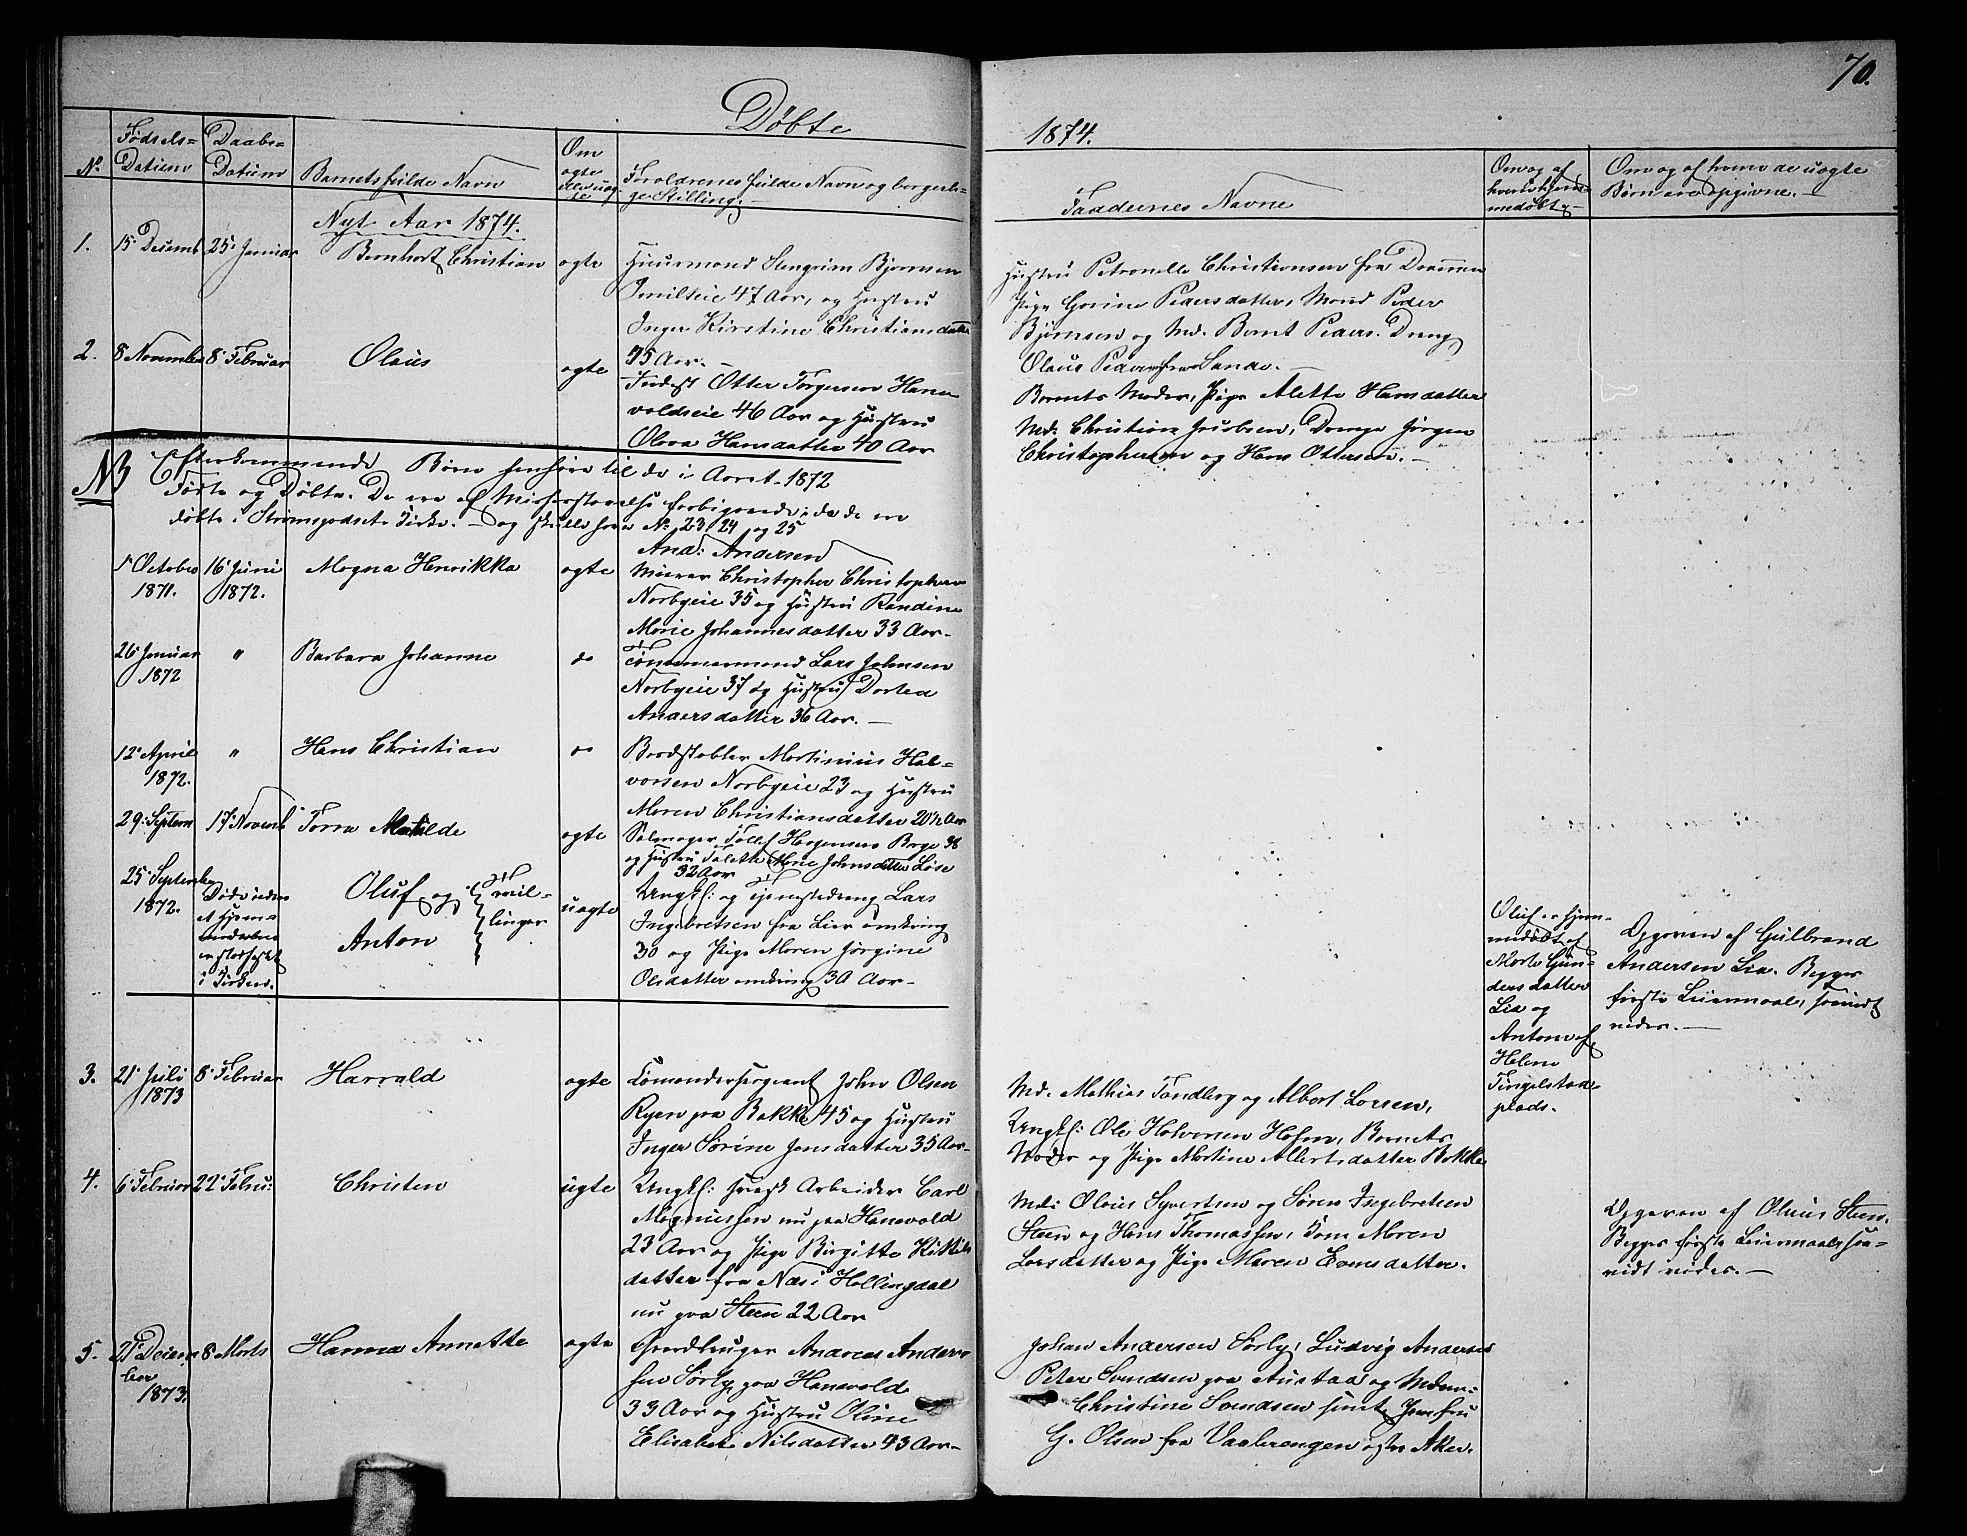 70.
Døbte
1874.
No
Fødsels=
Datum
Daabs=
Datum
Barnets fulde Navn
Om
ægte
eller uæg-
te
Forældrenes fulde Navn og borgerli-
ge Stilling.
Faddernes Navne
Om og af
hvem hjem-
medøbt
Om og af hvem de uægte
Børn ere opgivne.
Nyt Aar 1874.
1.
15 Decemb
25 Januar
Bernhart Christian
ægte
Huusmand Stengrim Bjørnsen
47 Aar, og Hustru
Inger Kirstine Christiansdatter
45 Aar.
Hustru Petronelle Christiansen fra Drammen
Pige Gorine Pedersdatter, Mand Peder
Bjørnsen og Md. Bernt Peders. Dreng
Olaus Peders fra Sande.
2.
8 November
8 Februar
Olaus
ægte
Inderst Otter Torgersen Hane-
voldseie 46 Aar og Hustru
Olava Hansdatter 40 Aar
Barnets Moder, Pige Alette Hansdatter
Md. Christian Jacobsen, Drenge Jørgen
Christophersen og Hans Ottersen.
NB Efterkommende Børn henhøre til de i Aaret 1872
Fødte og Døbte. De ere af Misforstaaelse forbigaaede, da de ere
døbte i Strømsgodset Kirke. og skulle have No. 23 24 og 25
And: Andersen
1 October
1871.
16 Juni
1872.
Magna Henrikka
ægte
Murer Christopher Christophersen
Norbyeie 35 og Hustru Randine
Marie Johannesdatter 33 Aar
26 Januar
1872
"
Barbara Johanne
do
Tømmermand Lars Johnsen
Norbyeie 37 og Hustru Dorthea
Andersdatter 36 Aar.
12 April
1872.
"
Hans Christian
do
Bordstabler Martinius Hal-
vorsen Norbyeie 23 og Hustru
Maren Christiansdatter 20½ Aar
29 Septem
17 Novemb
Torra Matilde
ægte
Salmager Tollef Horgensen Berge 38
og Hustru Talette Marie Johnsdatter Løse
32 Aar
25 September
1872.
Døde uden
at Hjemme-
daaben
er stadfæstet
i Kirken.
Oluf og
Anton
Tvil-
linger
uægte
Ungk: og Tjenestedreng Lars
Ingebretsen fra Lier omkring
30 og Pige Maren Jørgine
Olsdatter omkring 30 Aar
Oluf er hjem-
medøbt af
Marte Gun-
dersdatter
Lia og
Anton af
Helene
Tingelstad-
plads.
Opgiven af Gulbrand
Andersen Lia. Begges
første Leiermaal, saavidt
vides.
3.
21 Juli
1873
8 Februar
Harrald
ægte
Comandersergeant John Olsen
Ryen paa Bakke 45 og Hustru
Inger Sørine Jensdatter 35 Aar
Md. Mathias Tandberg og Albert Larsen,
Ungk: Ole Halvorsen Holm, Barnets
Moder og Pige Martine Albertsdatter Bakke
4.
6 Februar
22 Febru:
Christen
uægte
Ungk: svensk Arbeider Carl
Magnussen nu paa Hanevold
23 Aar og Pige Birgitte Kittils
datter fra Næs i Hallingdal
nu paa Steen 22 Aar
Md: Olaus Syvertsen og Søren Ingebretsen
Steen og Hans Thomassen, Kone Maren
Larsdatter og Pige Maren Evensdatter.
Opgiven af Olaus Steen.
Begges første Leiermaal saa-
vidt vides.
5.
21 Decem
ber
1873.
8 Marts
Hanna Annette
ægte
Gaardbruger Andreas Ander-
sen Sørby paa Hanevold
33 Aar og Hustru Oline
Elisabet Nilsdatter 43 Aar
Johan Andersen Sørby, Ludvig Andersen
Peter Svendsen paa Austad og Madam
Christine Svendsen samt Jomfru
G. Olsen fra Vaalerengen østre Aker.